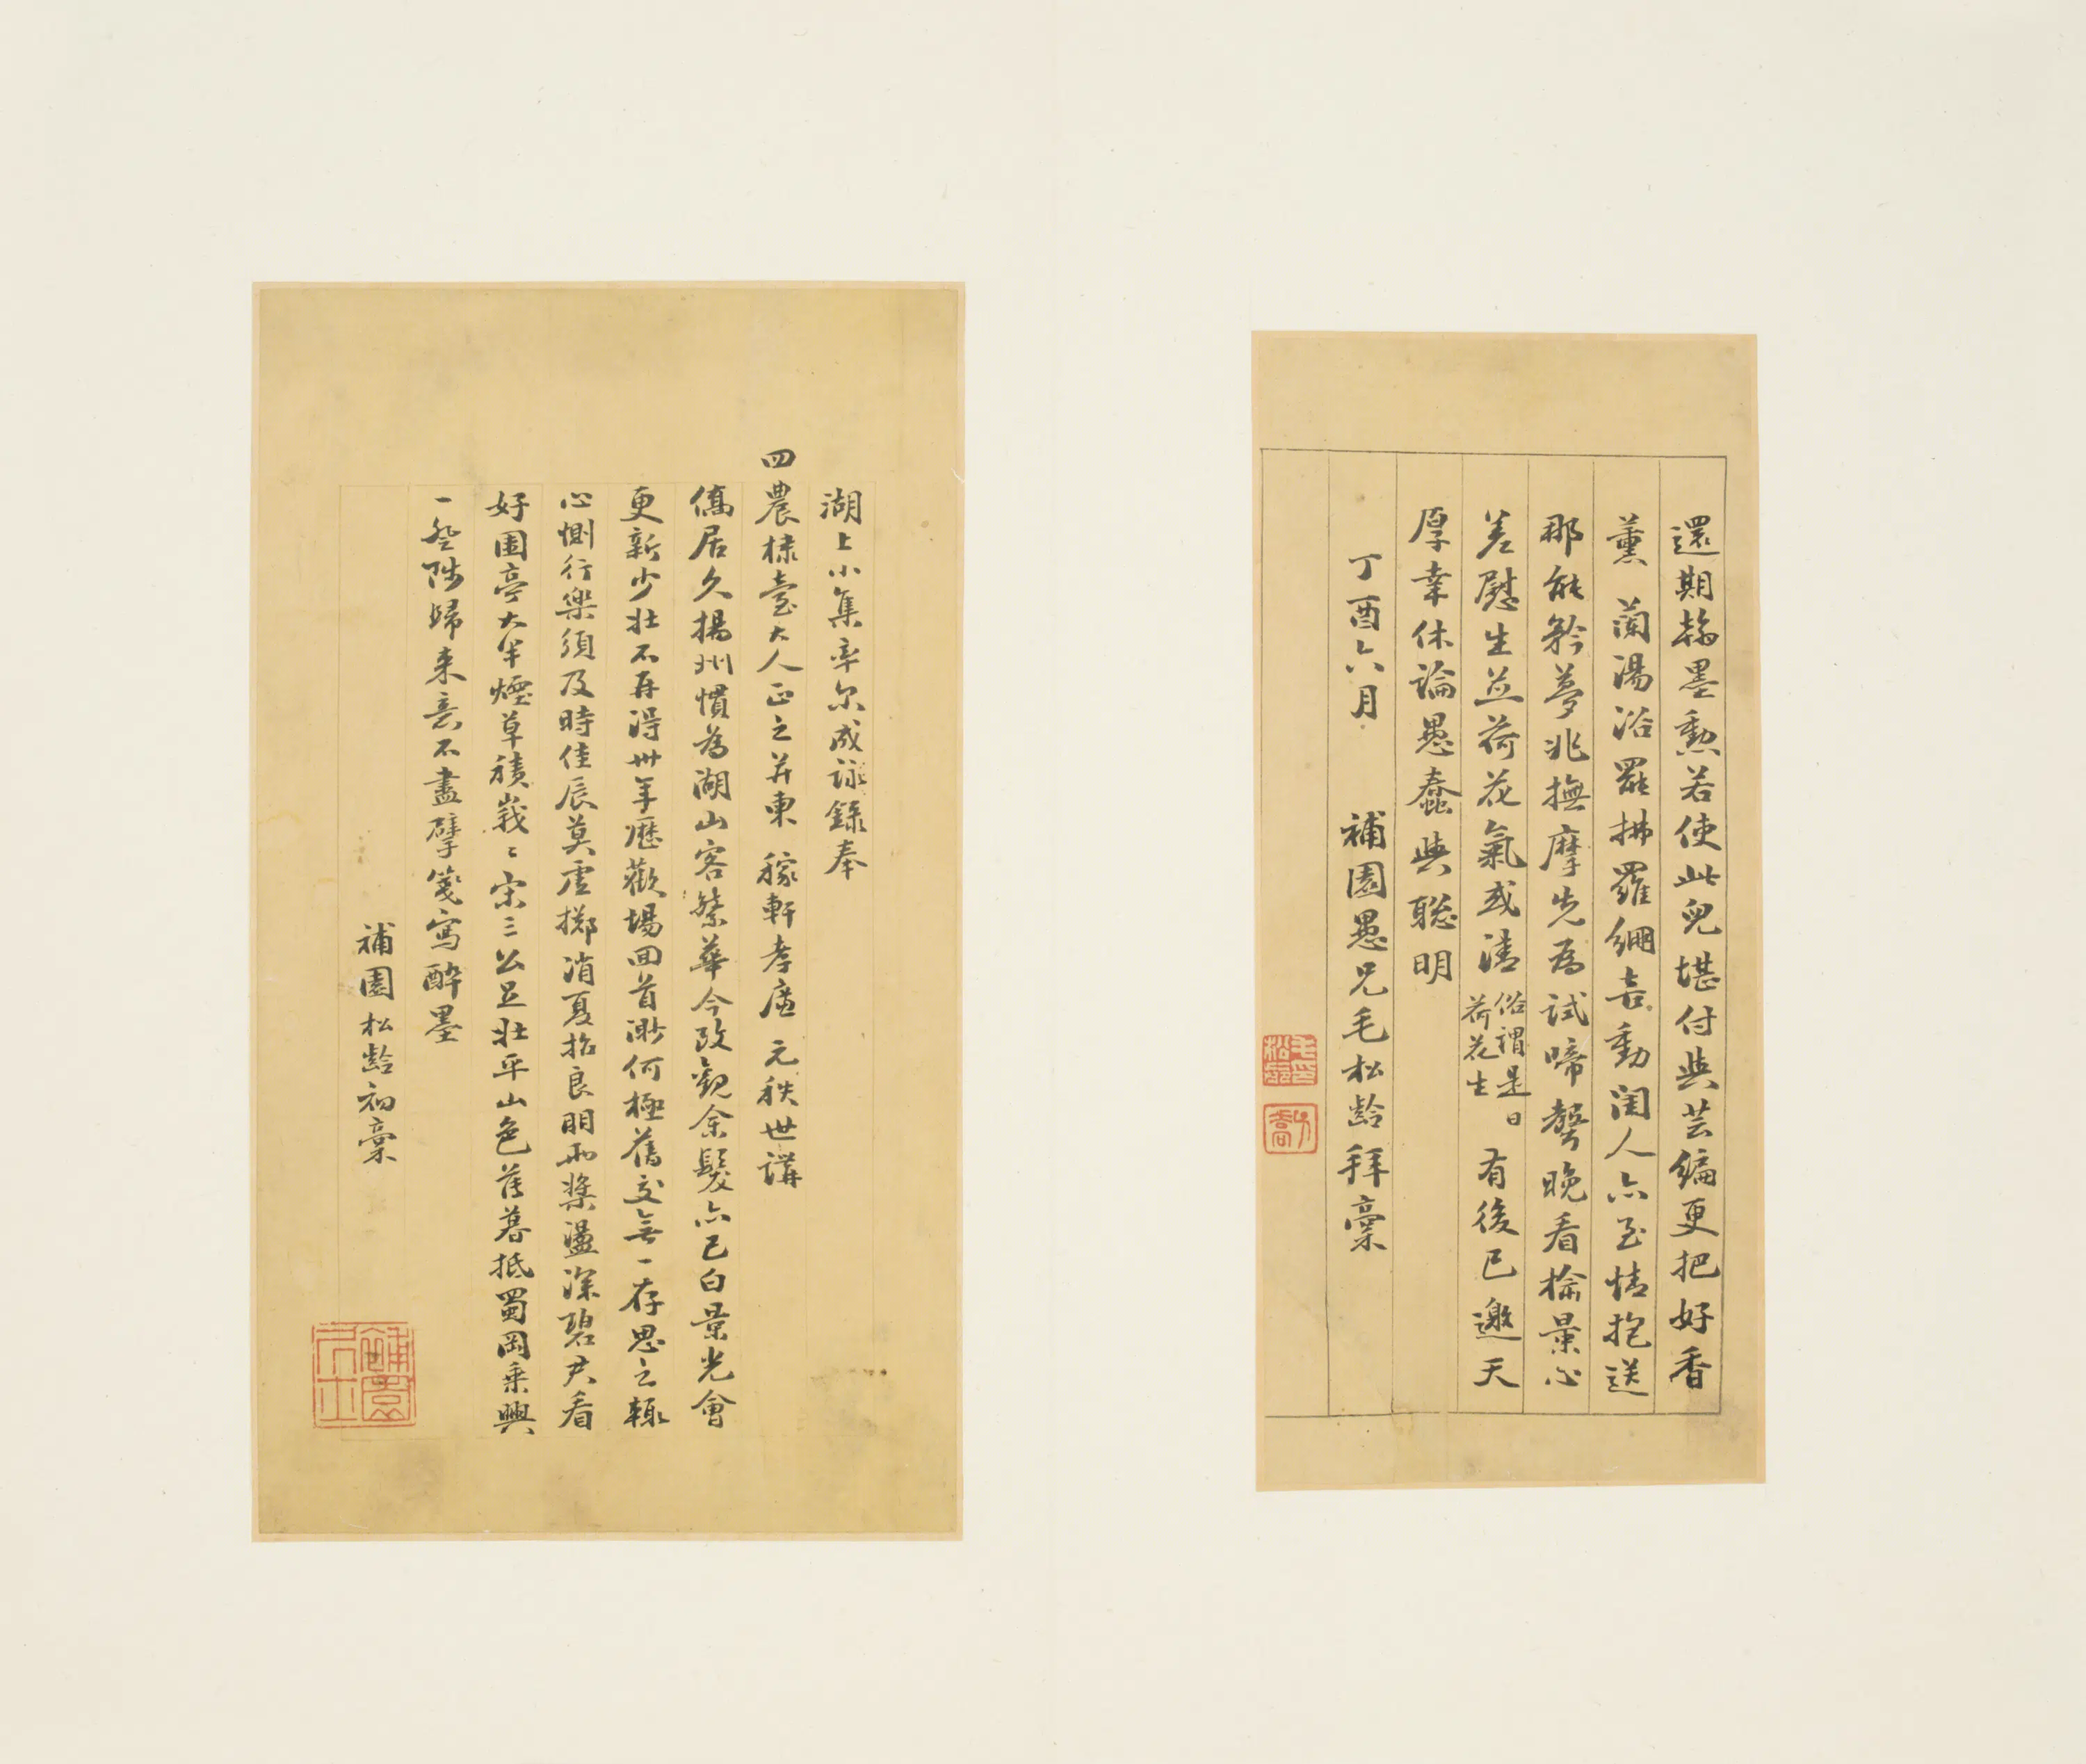 還期翰墨勳若使此兒堪付與芸編更把好香
薰 蘭湯浴罷拂羅綳喜動閨人亦至情抱送
那能矜夢兆撫摩先為試啼聲晚看榆景心
差慰生並荷花氣或清 俗謂是日荷花生 有後已邀天
厚幸休論愚蠢與聰明
丁酉六月 補園愚兄毛松齡拜稾
毛松齡印
湖上小集率尔成詠錄奉
四農棣臺大人正之并柬 稼軒孝廉 元秩世講
僑居久揚州慣為湖山客繁華今改觀余髮亦已白景光會
更新少壯不再得卅年歷歡場回首渺何極舊交無一存思之輒
心惻行樂須及時佳辰莫虛擲消夏招良朋兩槳盪深碧君看
好園亭大半煙草積峩〻宋三公足壯平山色薄暮抵蜀岡乘興
一登陟歸来意不盡擘箋寫醉墨
補園松齡初稾
補園居士